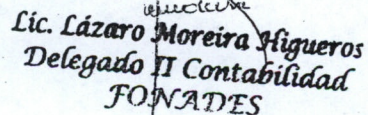 Lic. Lázaro Moreira Higueros
Delegado II Contabilidad
FONADES